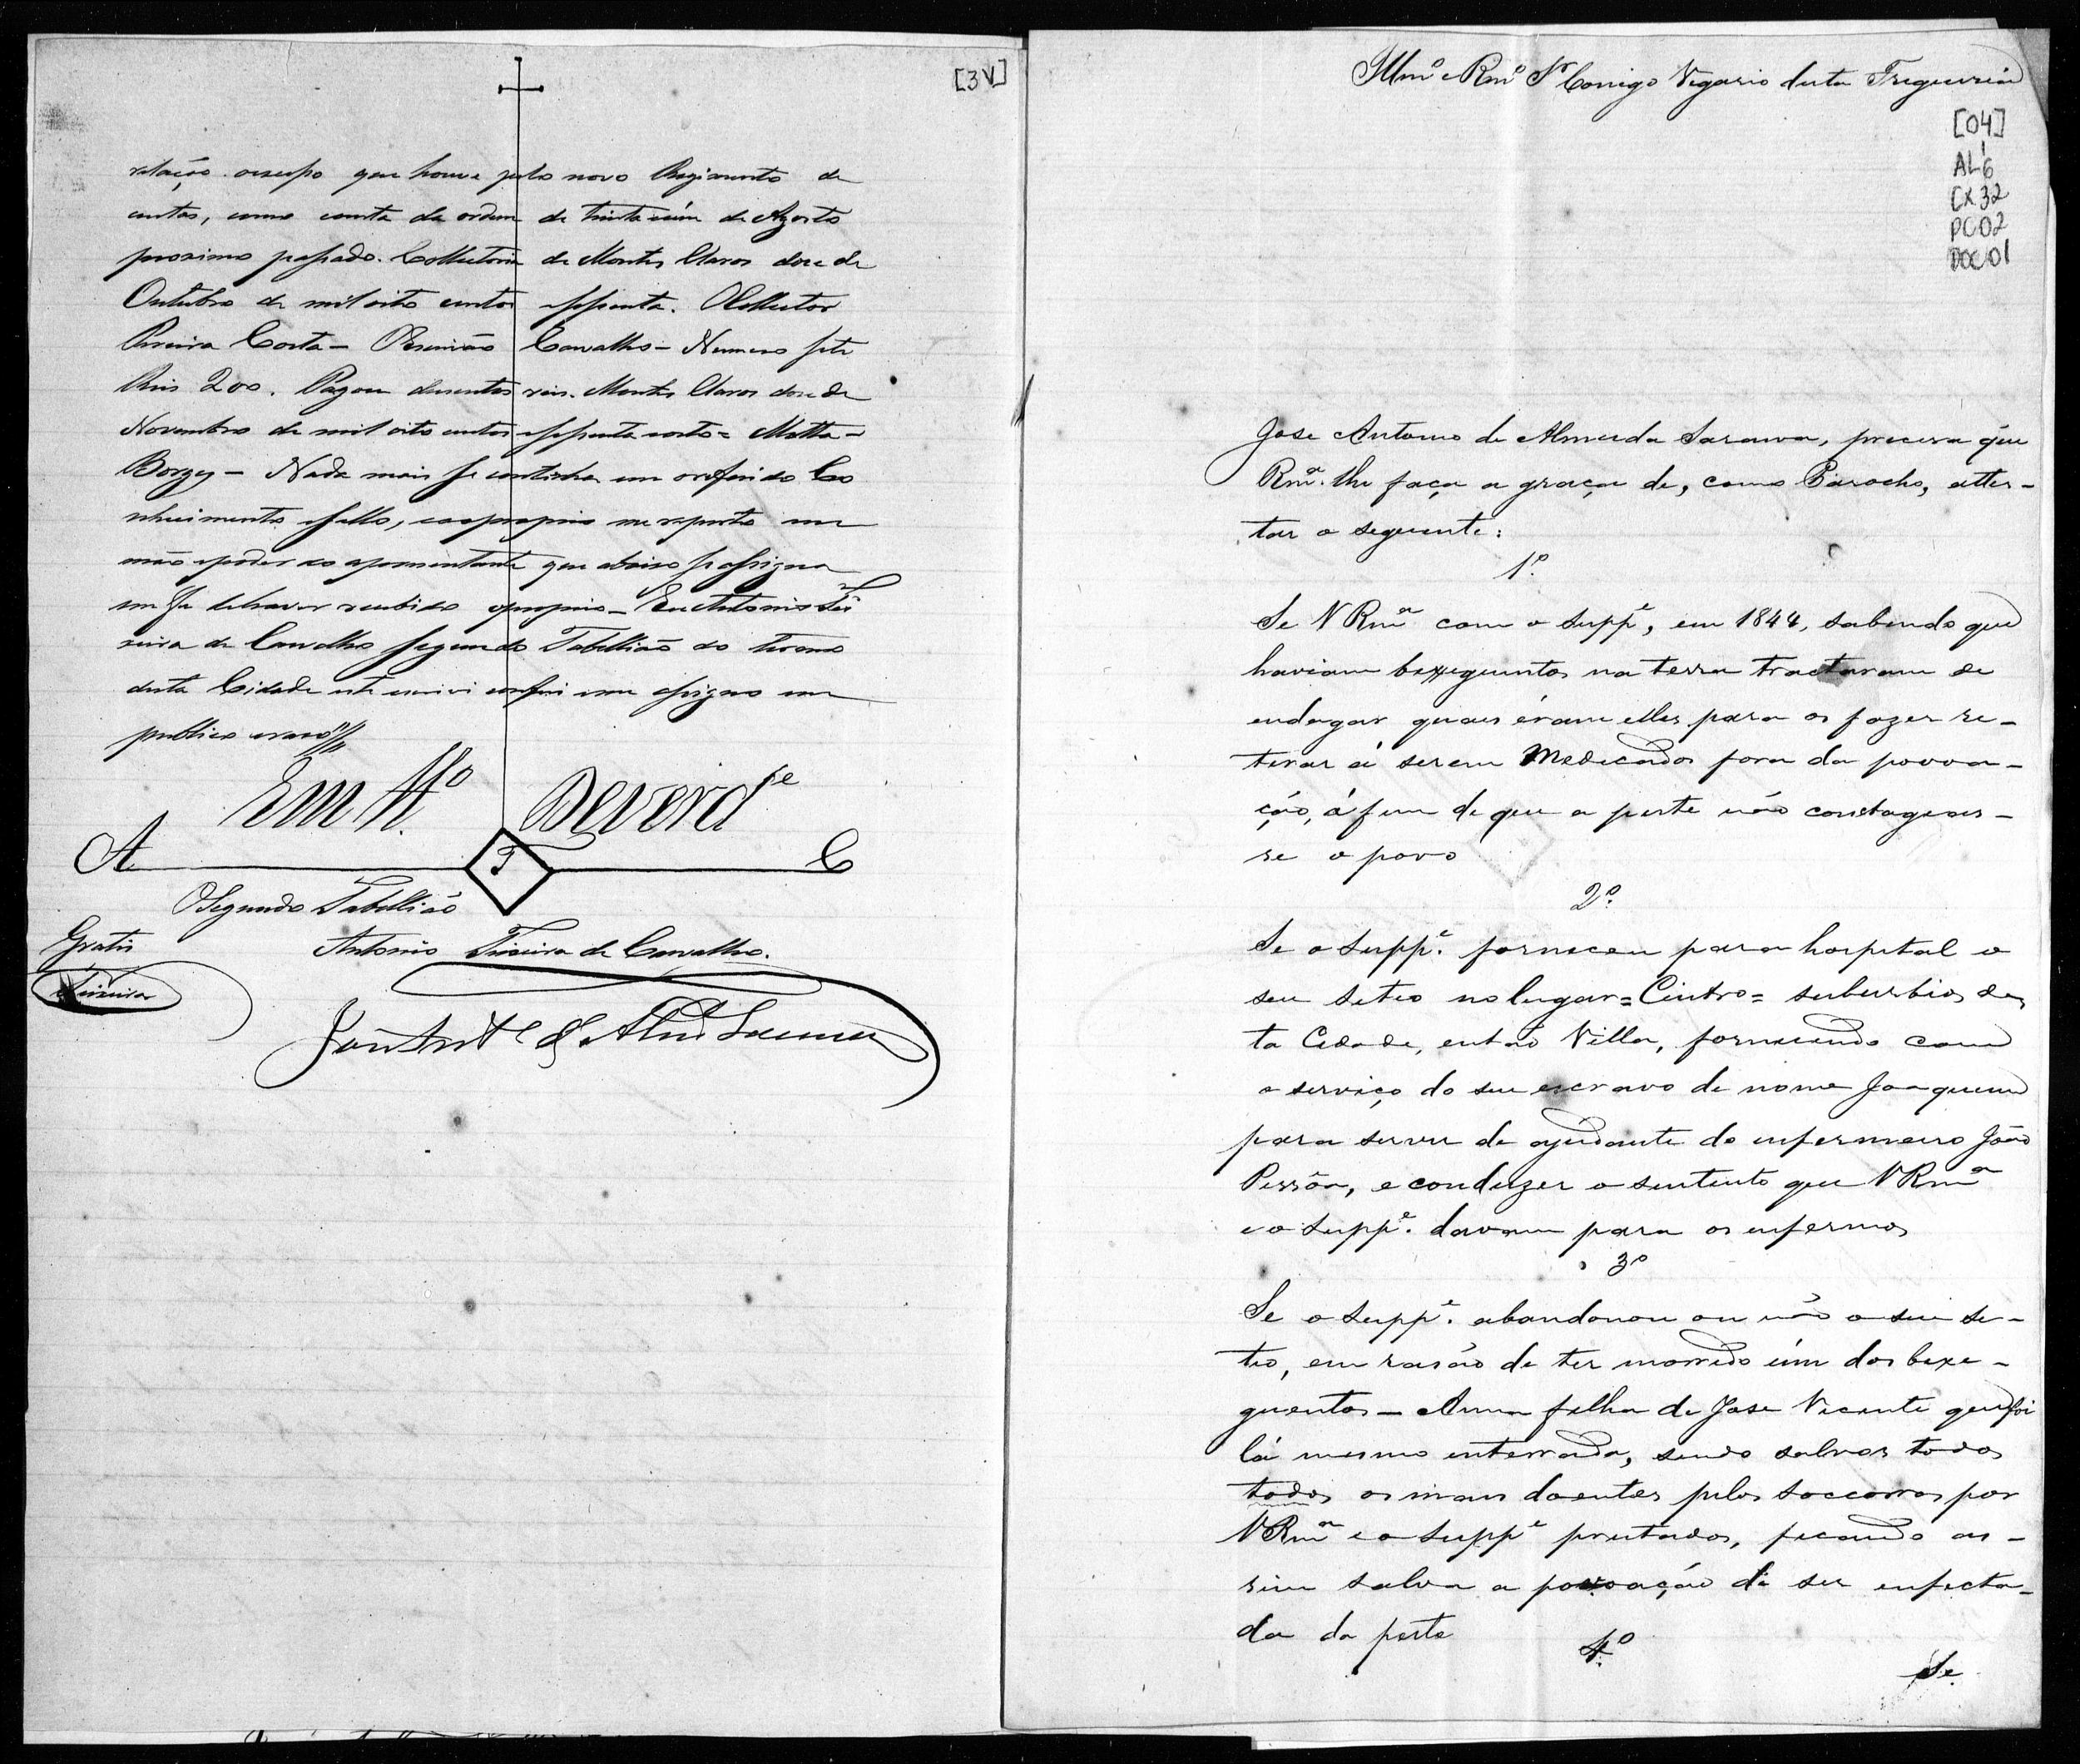 [3V]
relação ao sello que houve pelo novo Regimento de
custas, como consta da ordem de trinta e úm de Agosto
proximo passado. Collectoria de Montes Claros doze de
Outubro de mil oito centos e setenta. O Collector
Pereira Costa - O Escrivão Carvalho - Numero sete
Reis 200. Pagou dusentos reis. Montes Claros doze de
Novembro de mil oito centos e setenta e oito = Motta -
Borges - Nada mais se continha em o referido Co
nhecimento e sello, e ao proprio me reporto em
mão e poder do apresentante que abaixo se assigna
em fé de haver recebido o proprio - Eu Antonio Tei
xeira de Carvalho segundo Tabellião do termo
desta Cidade este escrivi conferi e me assigno em
publico e raso
Em tto. De verde
A T C
O Segundo Tabellião
Gratis
Antonio Teixeira de Carvalho.
Teixeira
José Anto de Almda Saraiva
Illmo e Rmo Sr Conigo Vigario desta Freguezia
[04]
AL6
CX32
PC02
DOC01
Jose Antonio de Almeida Saraiva, precisa que
Rma. lhe faça a graça de, como Parocho, attes-
tar o seguinte:
1º.
Se V Rma com o suppe, em 1844, sabendo que
haviam bexeguentos na terra tractaram de
endagar quaes éram elles para os fazer re-
terar á serem Medecados fora da povoa-
ção, á fim de que a peste não contagias-
se o povo
2º.
Se o suppe. forneceu para hospital o
seu setio no lugar = Cintro = suburbios des
ta Cedade, então Villa, fornecendo com
o serviço do seu escravo de nome Joaquim
para servir de ajudante do enfermeiro João
Pessôa, e conduzer o sustento que V Rma
e o suppe. davam para os enfermos
3º
Se o suppe. abandonou ou não o seu se-
tio, em rasão de ter morredo úm dos bexe-
guentos - Anna filha de Jose Vicente que foi
lá mesmo enterrada, sendo salvos todos
todos os mais doentes pelos soccorros por
V Rma e o suppe prestados, ficando as-
sim salva a povoação de ser enfecta-
da da peste
4º.
Se